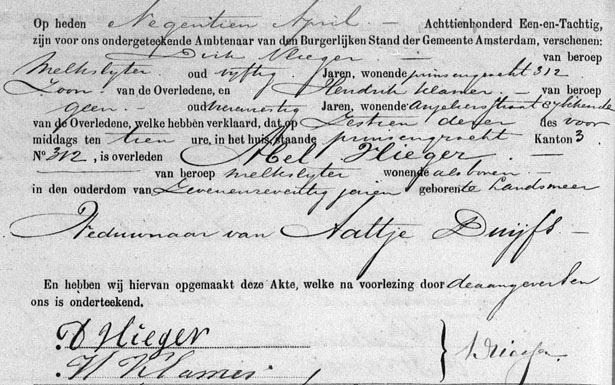 Op heden Negentien April. — Achttienhonderd Een-en-Tachtig,
zijn voor ons ondergeteekende Ambtenaar van den Burgerlijken Stand der Gemeente Amsterdam, verschenen:
Dirk Vlieger — van beroep
Melkslyter. oud vyftig Jaren, wonende prinsengracht 312
Zoon — van de Overledene, en Hendrik Klamer. — van beroep
geen — oud Jaren, wonende
van de Overledene, welke hebben verklaard, dat op Zestien dezer des voor
middags ten tien ure, in het huis, staande prinsengracht Kanton 3.
No 312, is overleden Abel Vlieger. —
— van beroep melkslyter wonende als boven. —
in den ouderdom van Zevenenzeventig jaren geboren te Landsmeer
Weduwnaar van Aaltje Duijfs —
En hebben wij hiervan opgemaakt deze Akte, welke na voorlezing door de aangevers en
ons is onderteekend,
D Vlieger
H Klamer